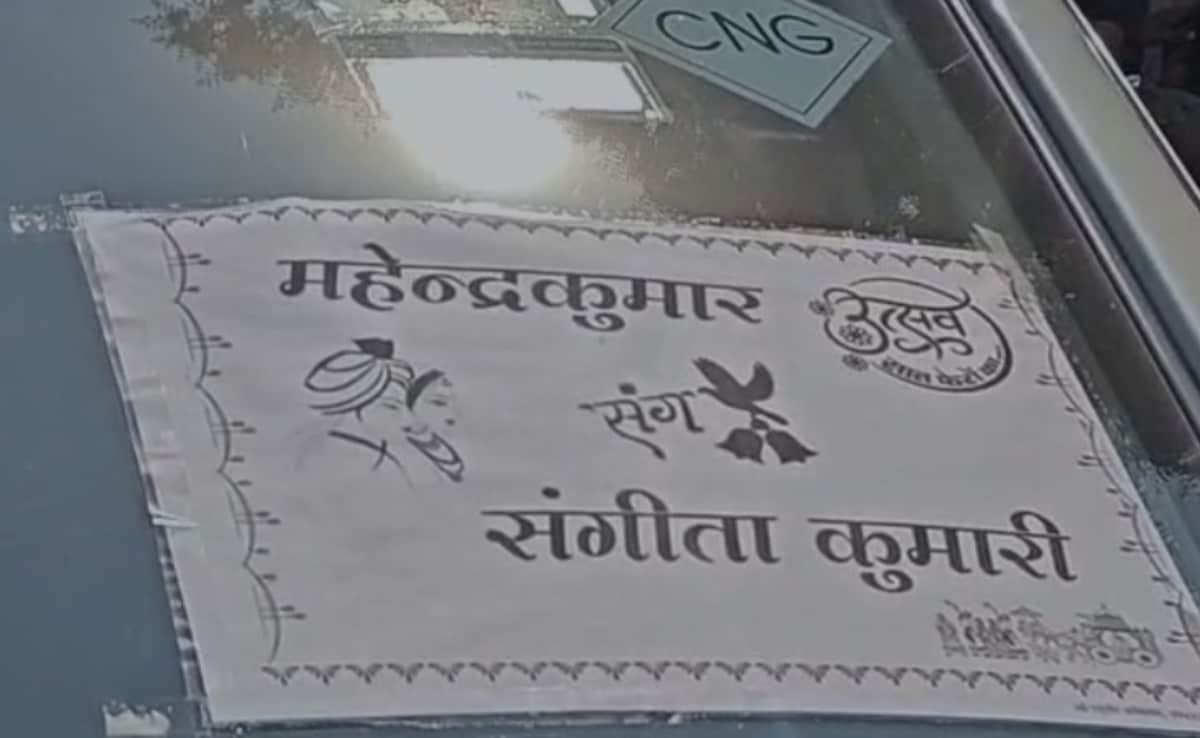 CNG
महेन्द्रकुमार
उत्सव
सात फेरों का
संग
संगीता कुमारी